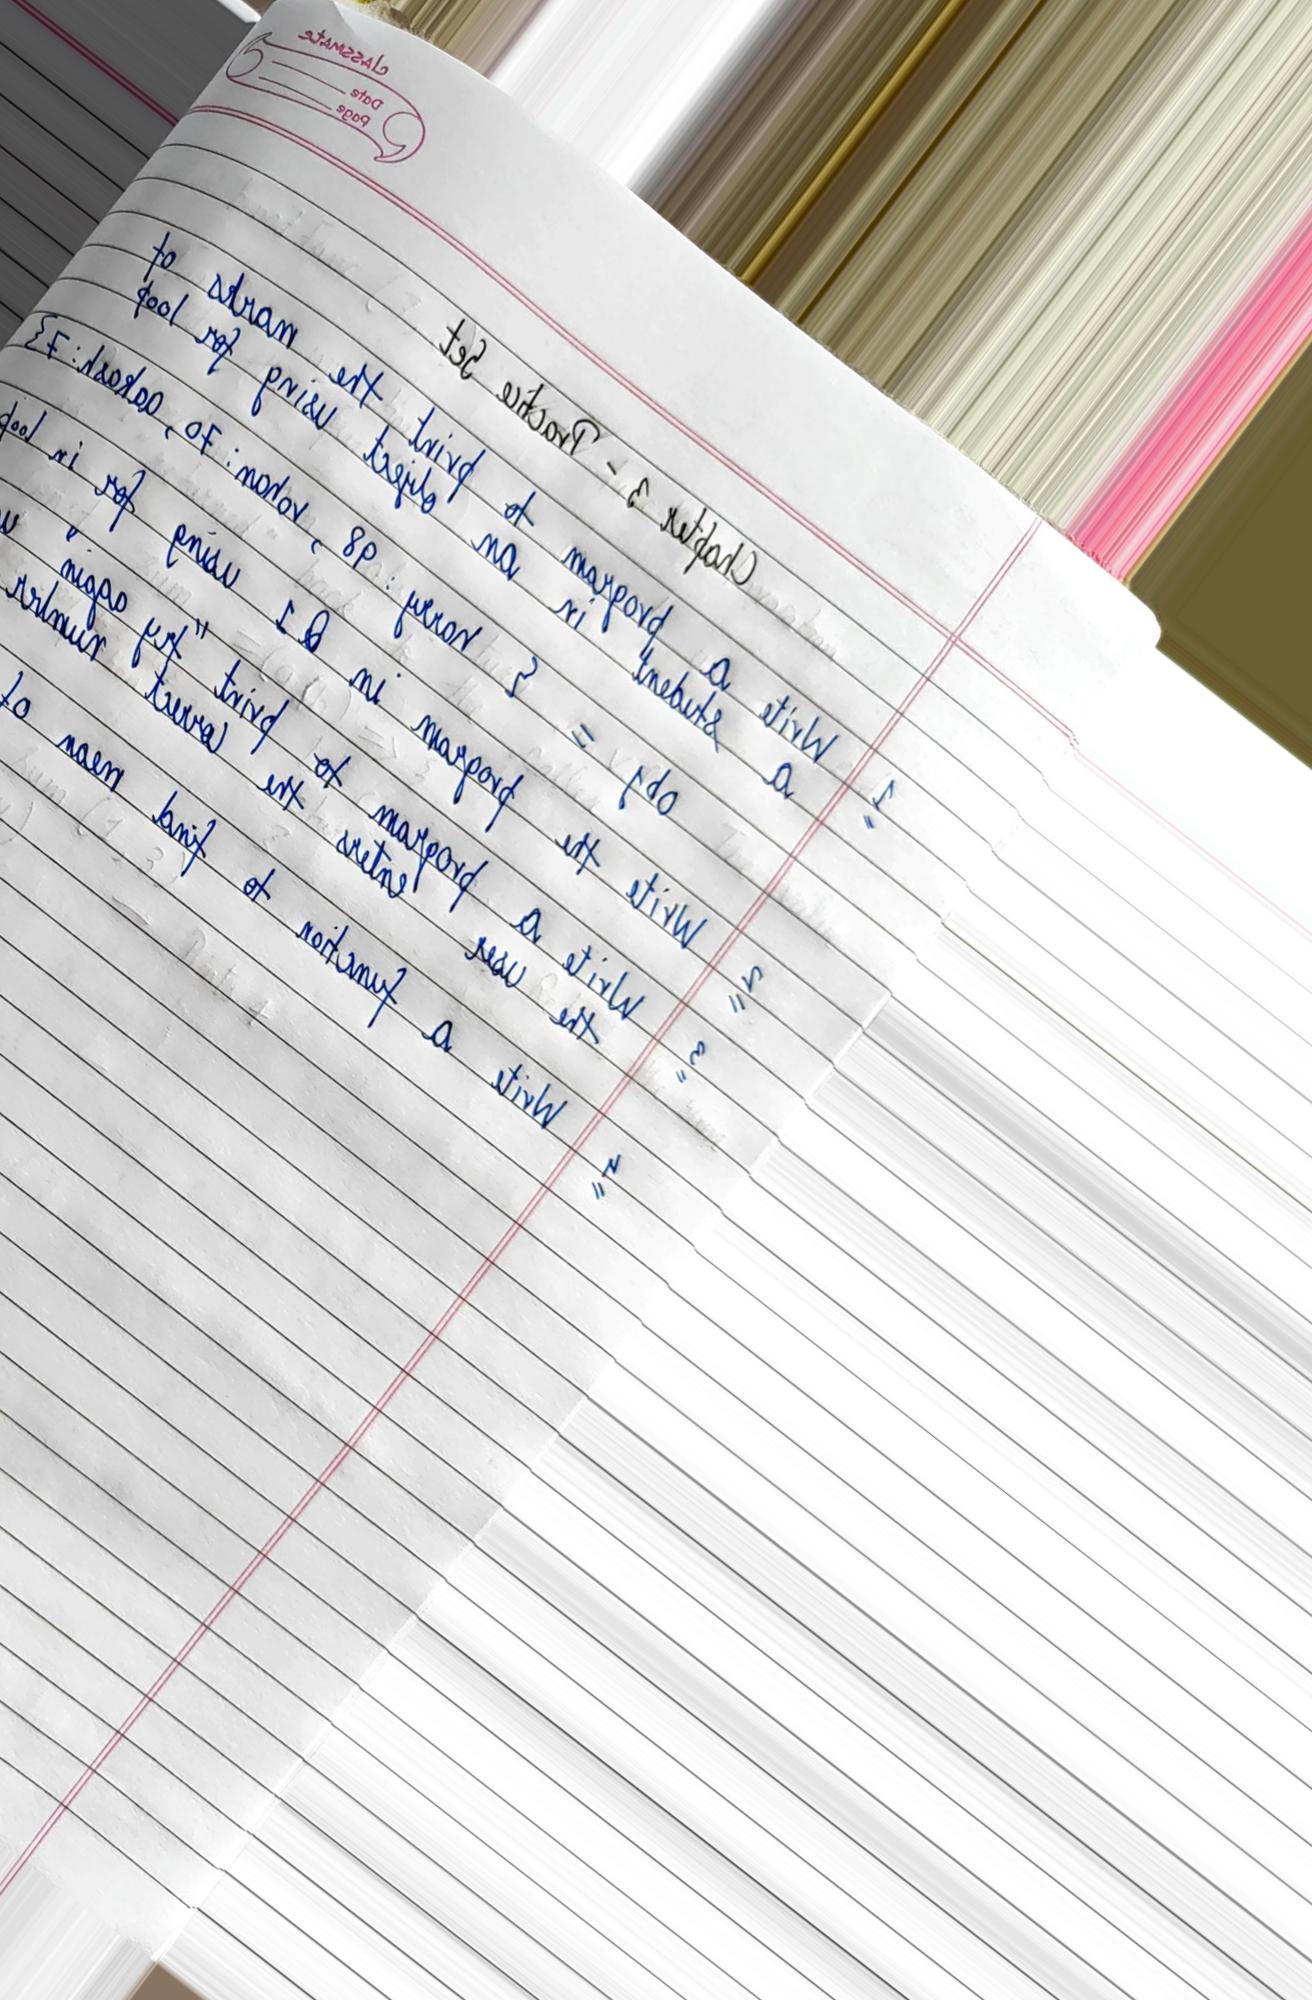 classmate
Date
Page
Chapter 3 - Practice Set
1. Write a program to print the marks of
a student in an object using for loop
obj = { harry: 98, rohan: 70, aakash: 7}
2. Write the program in Q1 using for in loop
3. Write a program to print "try again"
the user enters the correct number
4. Write a function to find mean of